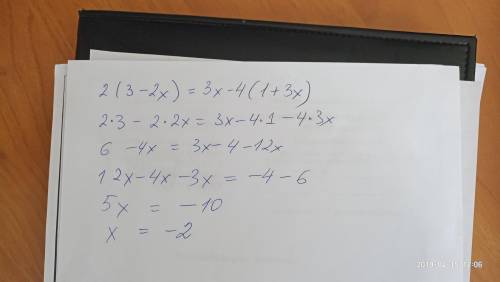 2(3-2x)=3x-4(1+3x)
2·3 - 2·2x=3x-4·1-4·3x
6 -4x = 3x-4-12x
12x-4x-3x = -4-6
5x = -10
x = -2